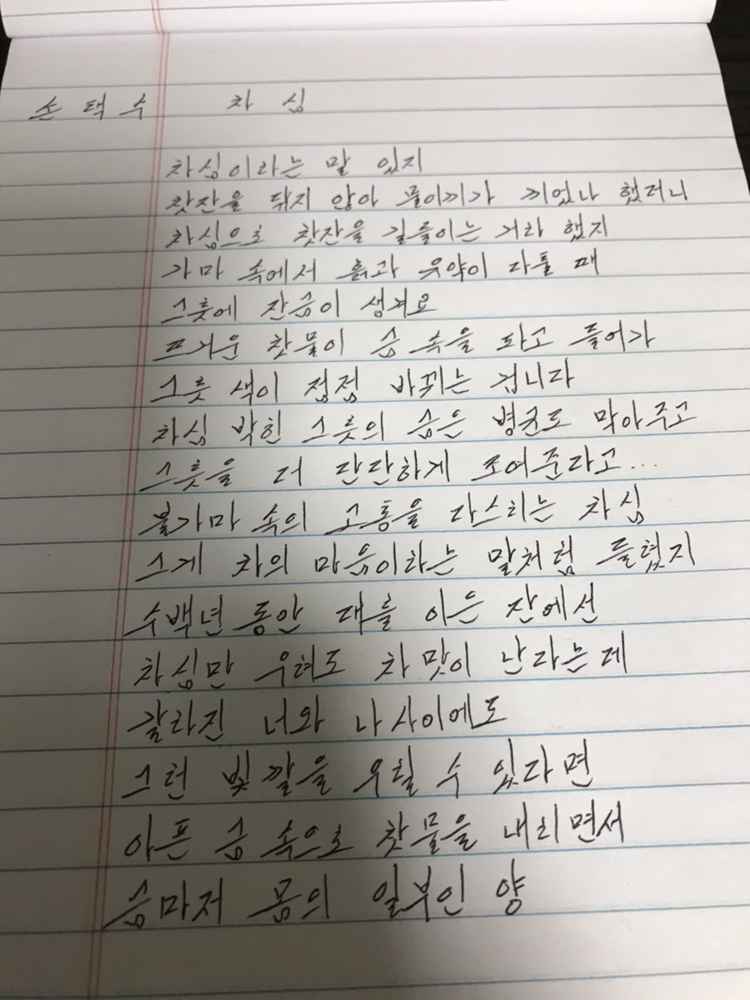 손택수 차심
차심이라는 말 있지
찻잔을 닦지 않아 물이끼가 끼었나 했더니
차심으로 찻잔을 길들이는 거라 했지
가마 속에서 흙과 유약이 다툴 때
그릇에 잔금이 생겨요
뜨거운 찻물이 금 속을 파고 들어가
그릇 색이 점점 바뀌는 겁니다
차심 박힌 그릇의 금은 병균도 막아주고
그릇을 더 단단하게 조여준다고...
불가마 속의 고통을 다스리는 차심
그게 차의 마음이라는 말처럼 들렸지
수백년 동안 대를 이은 잔에선
차심만 우려도 차맛이 난다는데
갈라진 너와 나 사이에도
그런 빛깔을 우릴 수 있다면
아픈 금 속으로 찻물을 내리면서
금마저 몸의 일부인 양